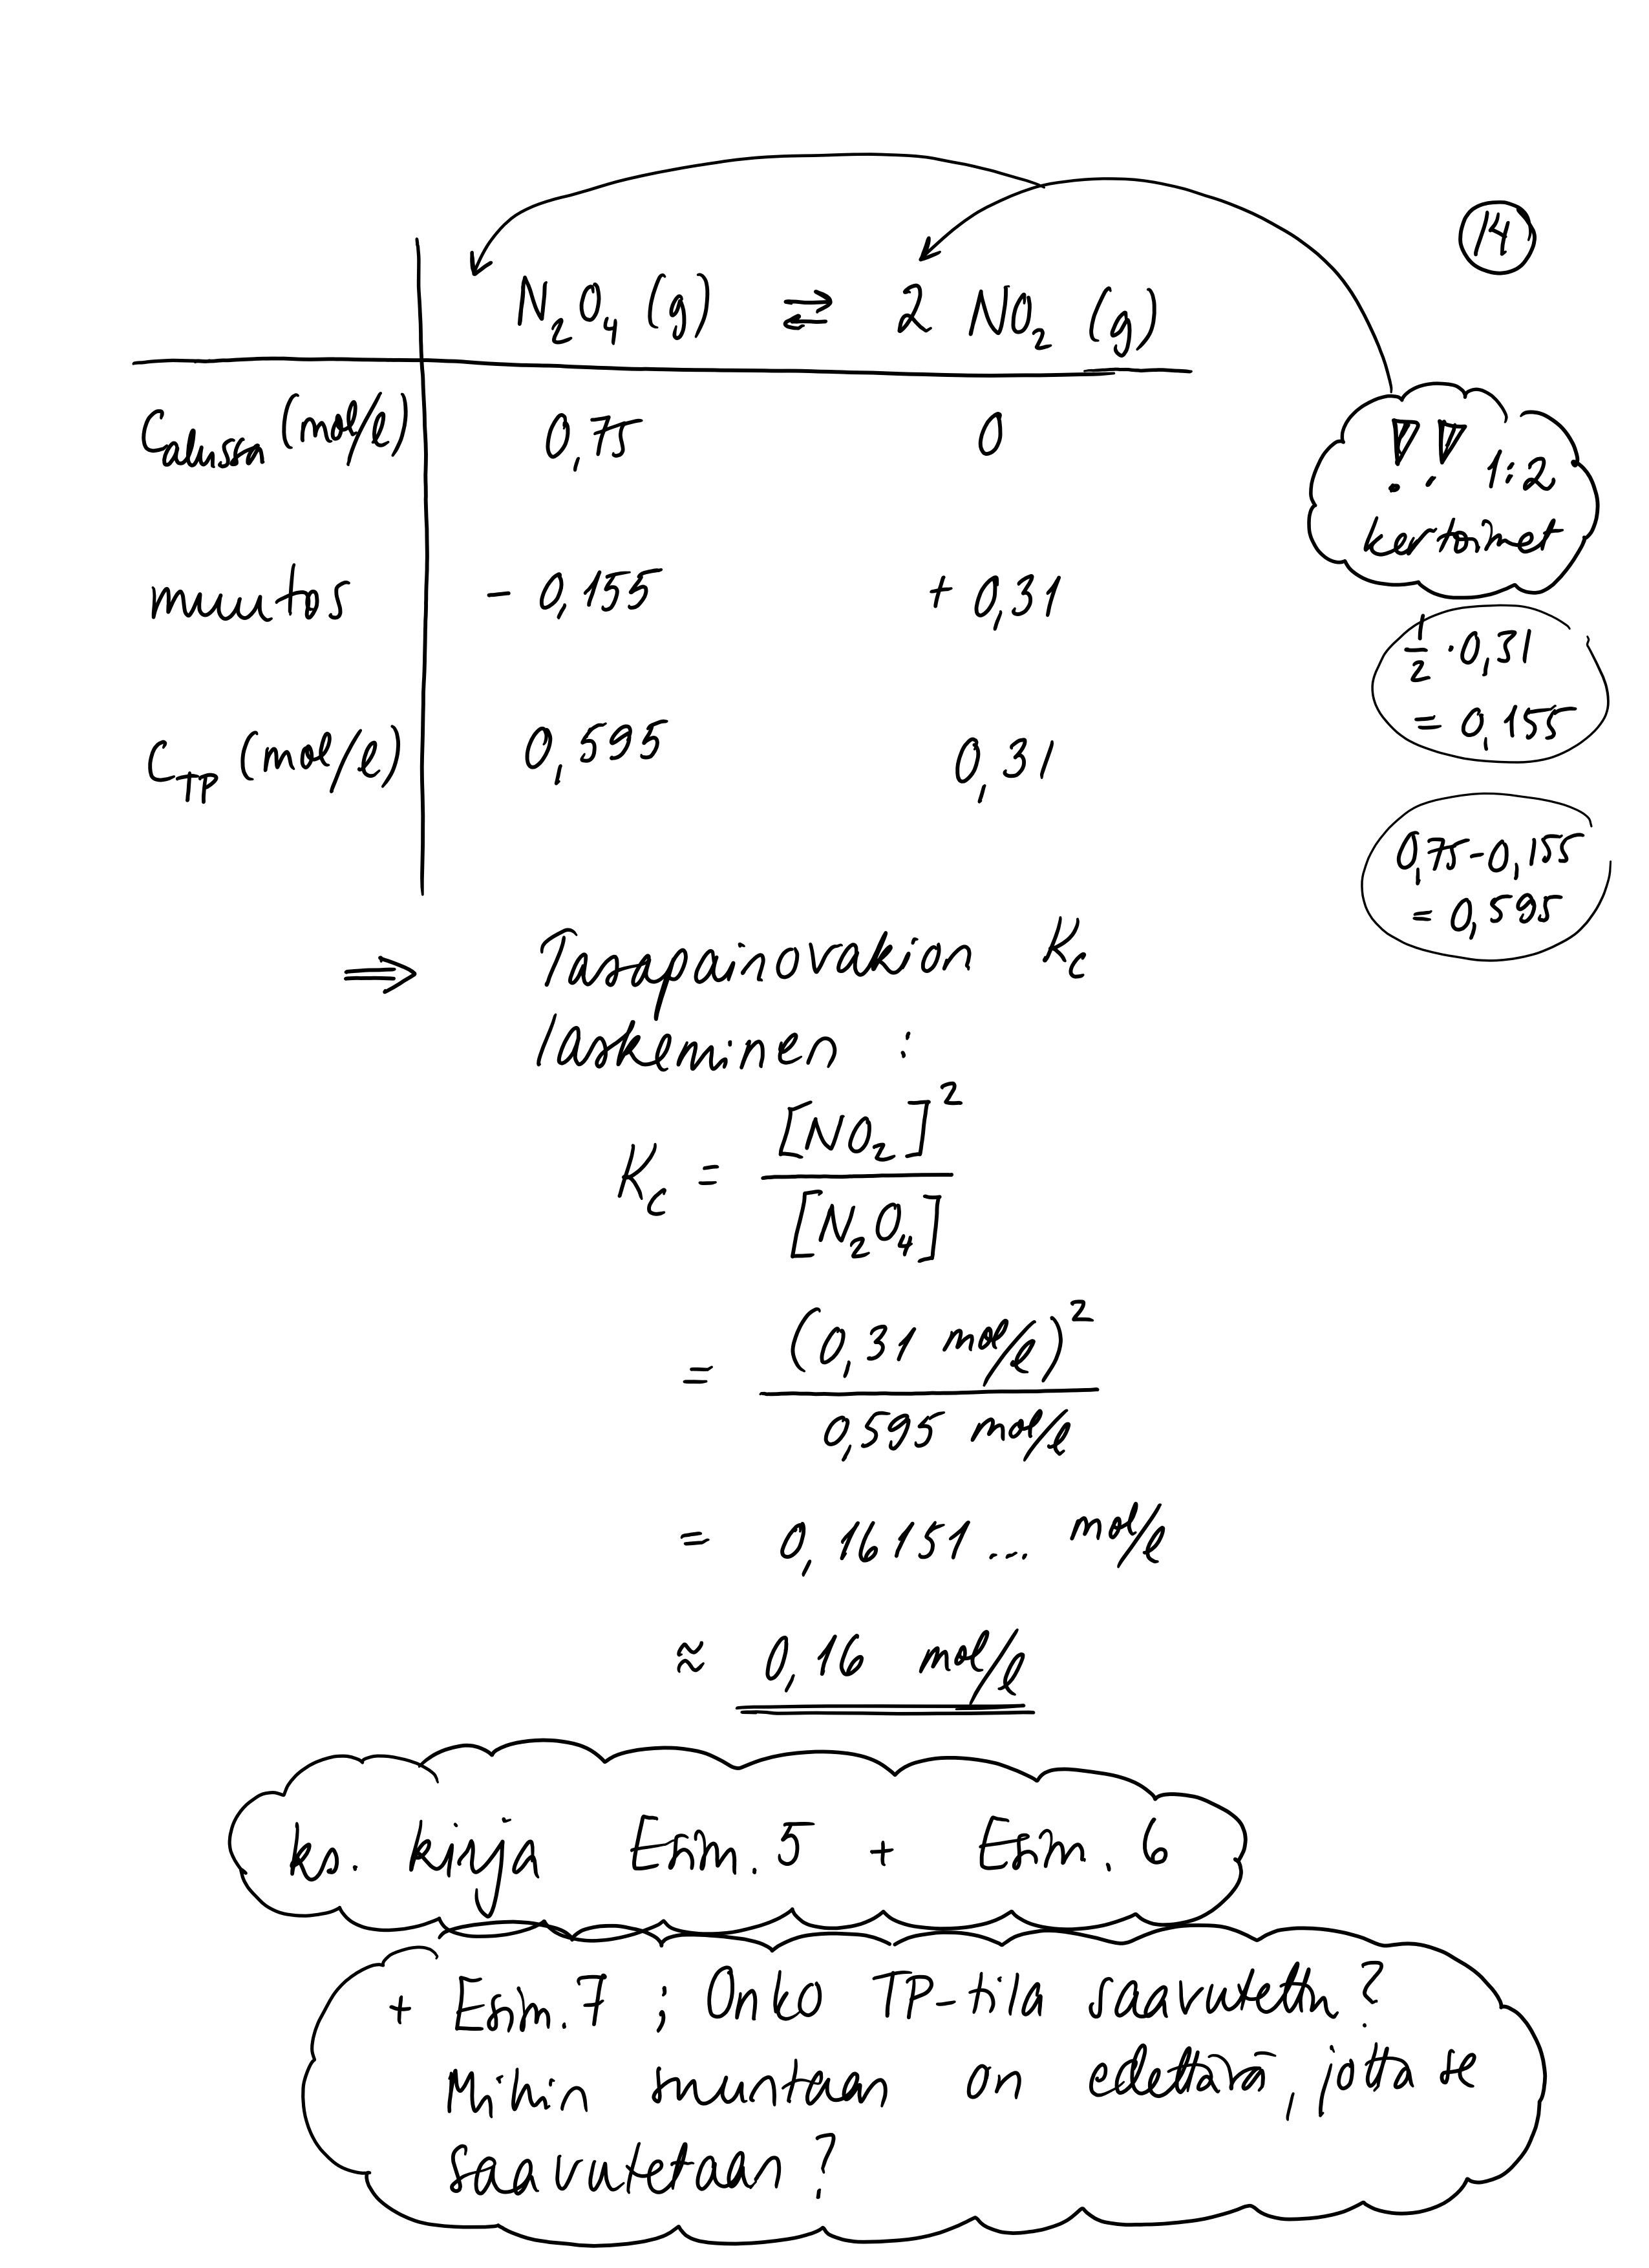 14
N₂O₄ (g) ⇄ 2 NO₂ (g)
C alussa (mol/l) 0,75 0
!! 1:2
kertoimet
muutos - 0,155 + 0,31
1/2 · 0,31
= 0,155
C TP (mol/l) 0,595 0,31
0,75-0,155
= 0,595
⇒ Tasapainovakion Kc
laskeminen :
Kc = [NO₂]² / [N₂O₄]
= (0,31 mol/l)² / 0,595 mol/l
= 0,16151... mol/l
≈ 0,16 mol/l
ks. kirja Esim. 5 + Esim. 6
+ Esim. 7 ; Onko TP-tila saavutettu?
Mihin suuntaan on edettävä, jotta se
saavutetaan?